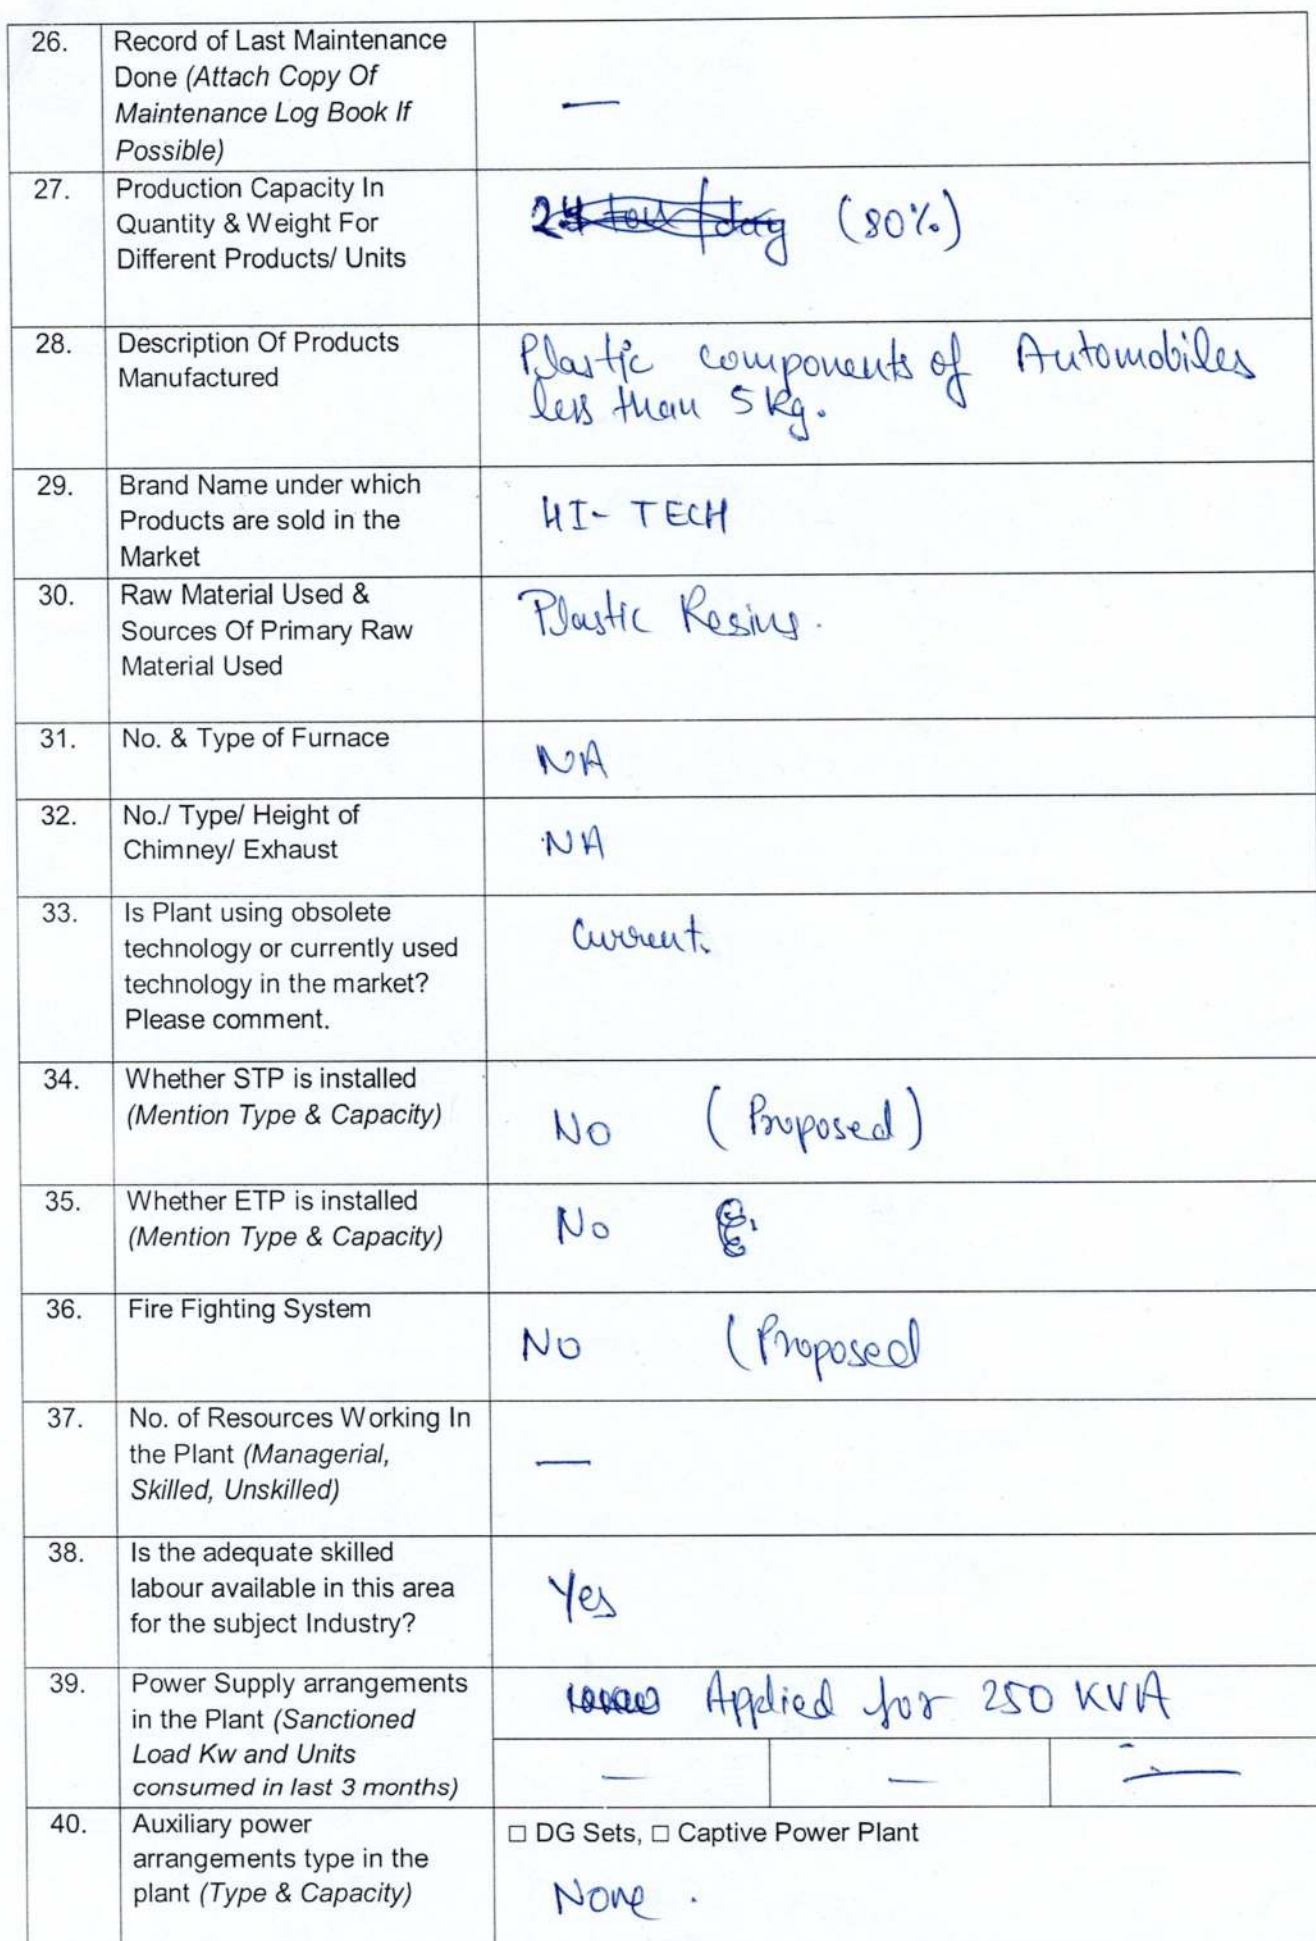 26.
Record of Last Maintenance
Done (Attach Copy Of
Maintenance Log Book If
Possible)
—
27.
Production Capacity In
Quantity & Weight For
Different Products/ Units
(80%)
28.
Description Of Products
Manufactured
Plastic components of Automobiles
less than 5 kg.
29.
Brand Name under which
Products are sold in the
Market
HI-TECH
30.
Raw Material Used &
Sources Of Primary Raw
Material Used
Plastic Resins.
31.
No. & Type of Furnace
NA
32.
No./ Type/ Height of
Chimney/ Exhaust
NA
33.
Is Plant using obsolete
technology or currently used
technology in the market?
Please comment.
Current.
34.
Whether STP is installed
(Mention Type & Capacity)
No (Proposed)
35.
Whether ETP is installed
(Mention Type & Capacity)
No
36.
Fire Fighting System
No (Proposed
37.
No. of Resources Working In
the Plant (Managerial,
Skilled, Unskilled)
—
38.
Is the adequate skilled
labour available in this area
for the subject Industry?
Yes
39.
Power Supply arrangements
in the Plant (Sanctioned
Load Kw and Units
consumed in last 3 months)
Applied for 250 KVA
— — —
40.
Auxiliary power
arrangements type in the
plant (Type & Capacity)
□ DG Sets, □ Captive Power Plant
None.